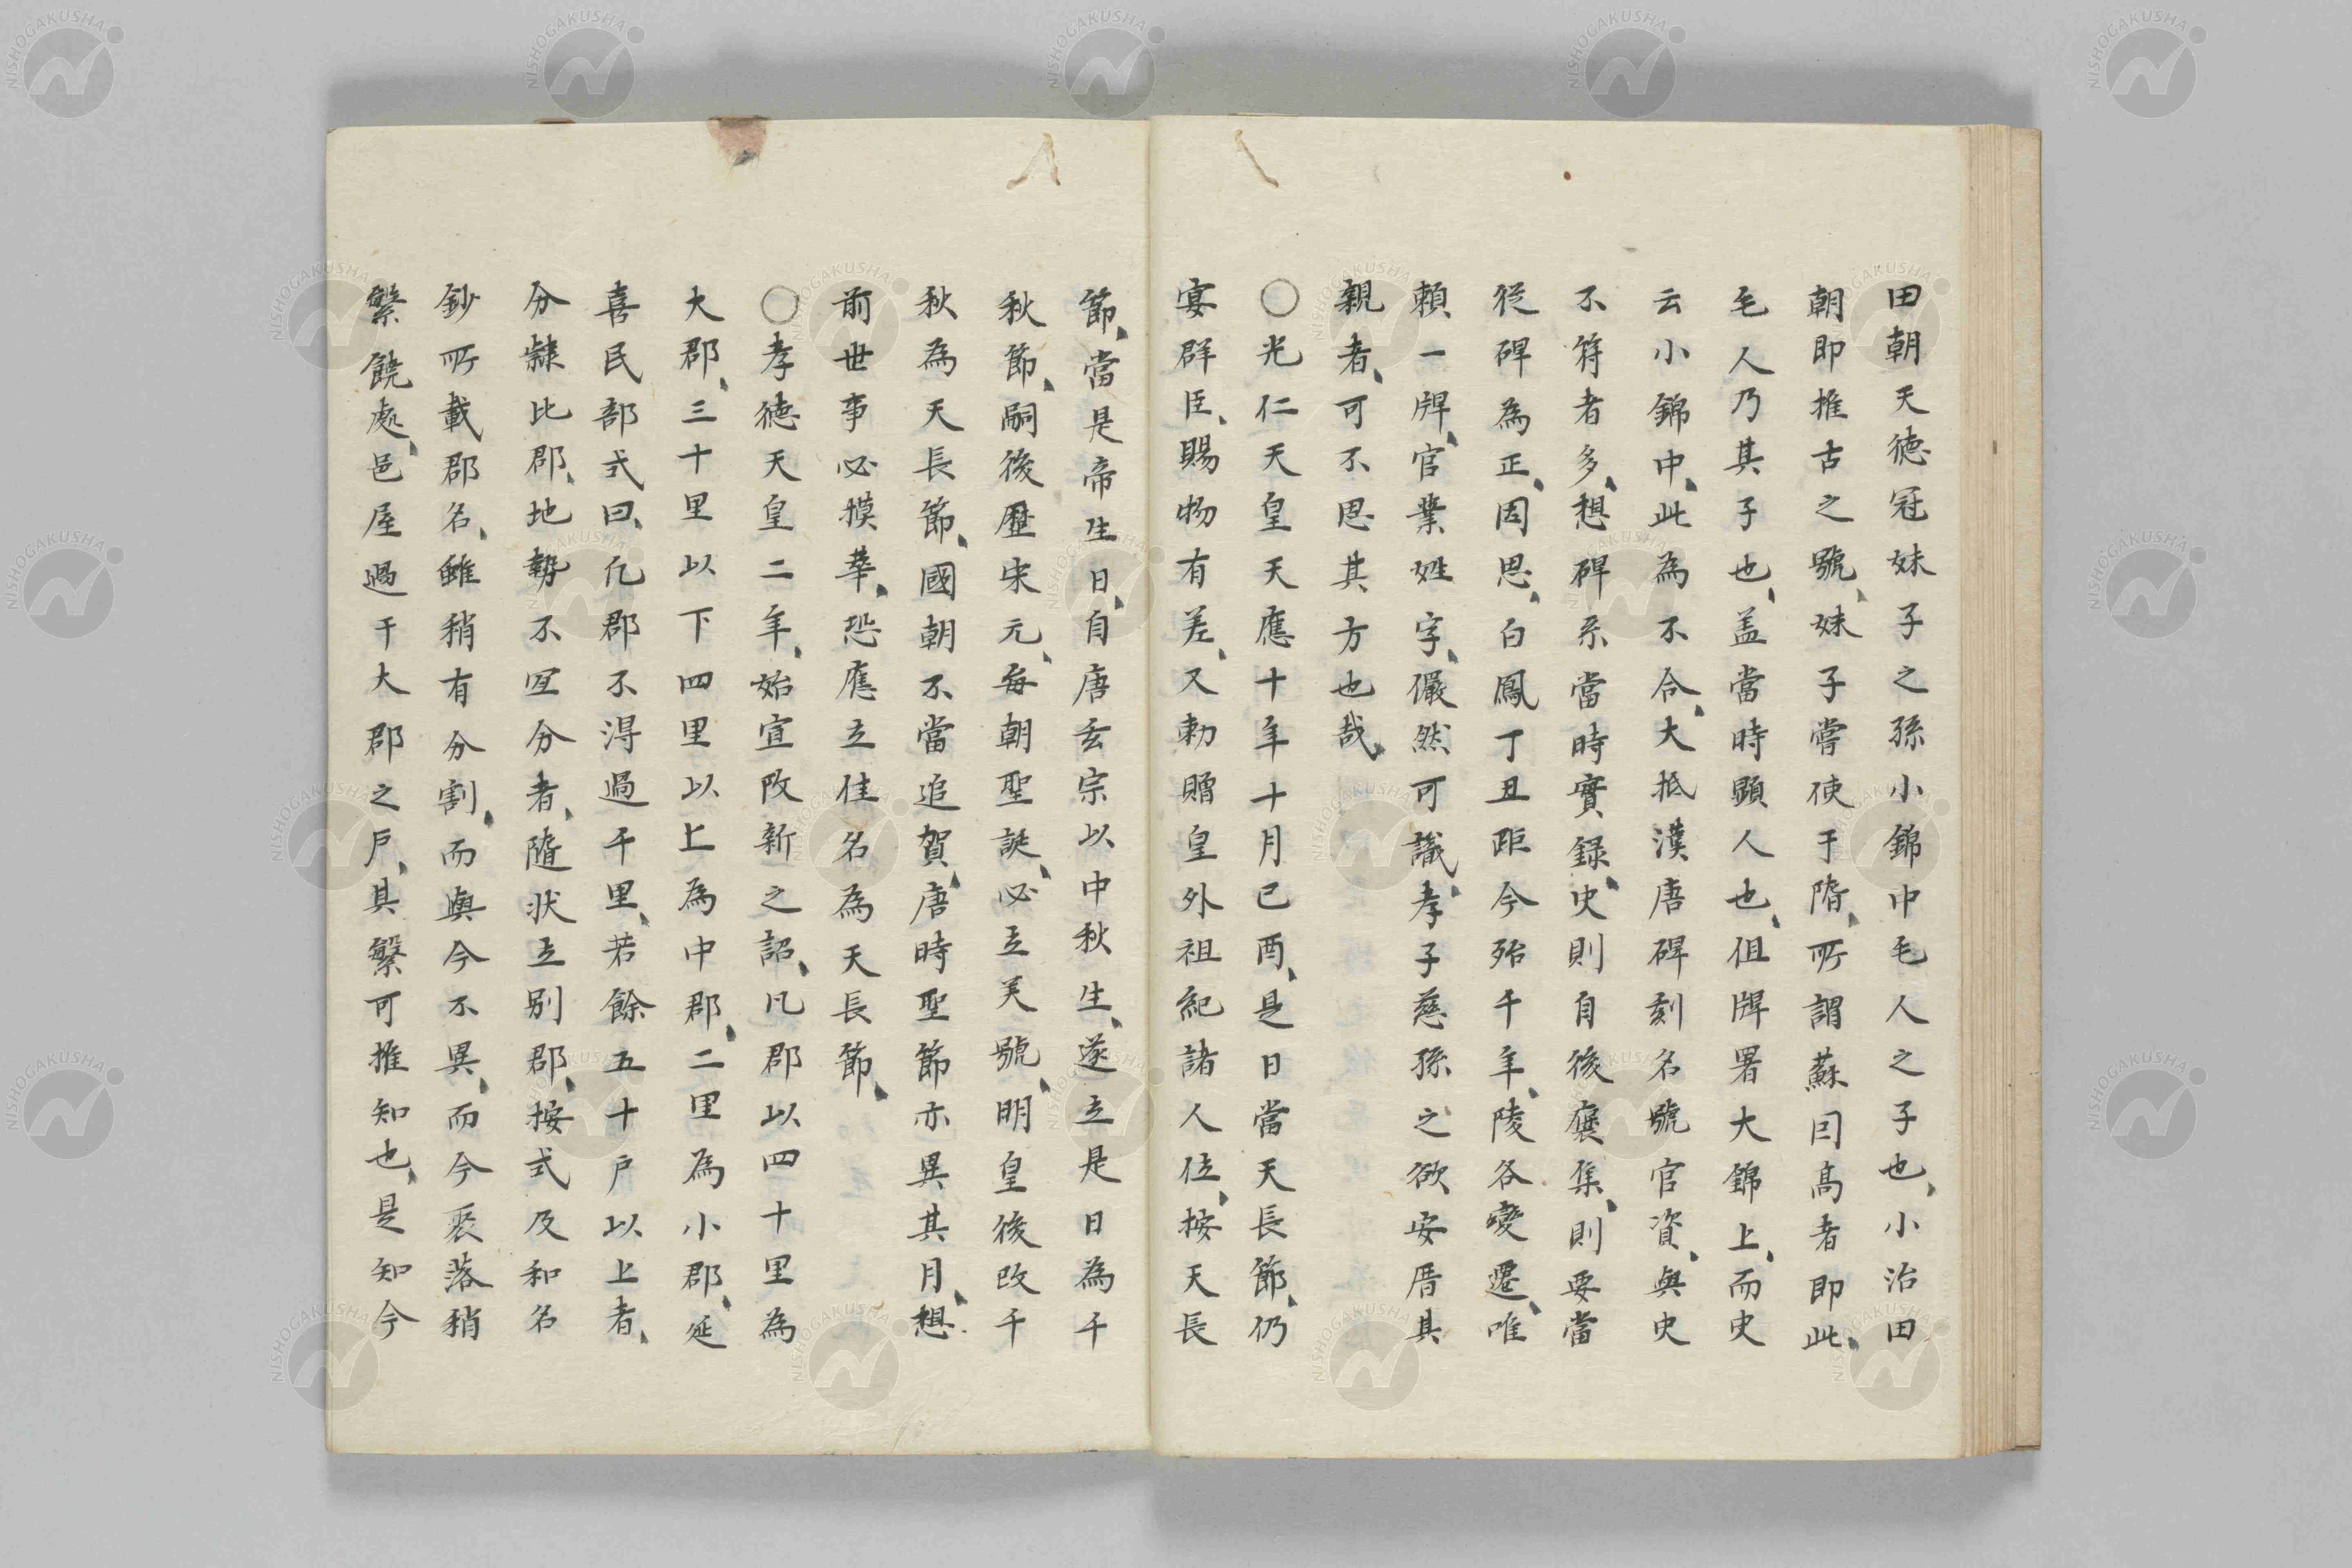 田朝天徳冠妹子之孫小錦中毛人之子也、小治田
朝即推古之號、妹子嘗使于隋、所謂蘇因高者即此、
毛人乃其子也、盖當時顕人也、但牌署大錦上、而史
云小錦中、此為不合、大抵漢唐碑刻名號官資、與史
不符者多、想碑系當時實録、史則自後裒集、則要當
従碑為正、因思、白鳳丁丑距今殆千年、陵谷變遷、唯
頼一牌、官業姓字、儼然可識、孝子慈孫之欲安厝其
親者、可不思其方也哉、
○光仁天皇天應十年十月己酉、是日當天長節、仍
宴群臣、賜物有差、又勅贈皇外祖紀諸人位、按天長
節、當是帝生日、自唐玄宗以中秋生、遂立是日為千
秋節、嗣後歴宋元、毎朝聖誕、必立美號、明皇後改千
秋為天長節、國朝不當追賀、唐時聖節亦異其月、想
前世事必摸華、恐應立佳名為天長節、
○孝徳天皇二年、始宣改新之詔、凡郡以四十里為
大郡、三十里以下四里以上為中郡、二里為小郡、延
喜民部式曰、凡郡不得過千里、若餘五十戸以上者、
分隷比郡、地勢不冝分者、隨状立別郡、按式及和名
鈔所載郡名、雖稍有分割、而與今不異、而今衰落稍
繁饒處、邑屋過于大郡之戸、其繁可推知也、是知今
NISHOGAKUSHA